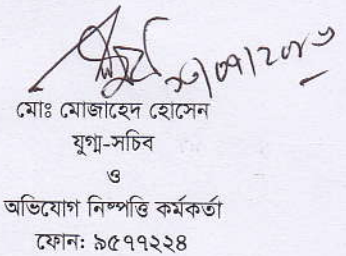 মোঃ মোজাহেদ হোসেন
যুগ্ম-সচিব
ও
অভিযোগ নিষ্পত্তি কর্মকর্তা
ফোন: ৯৫৭৭২২৪